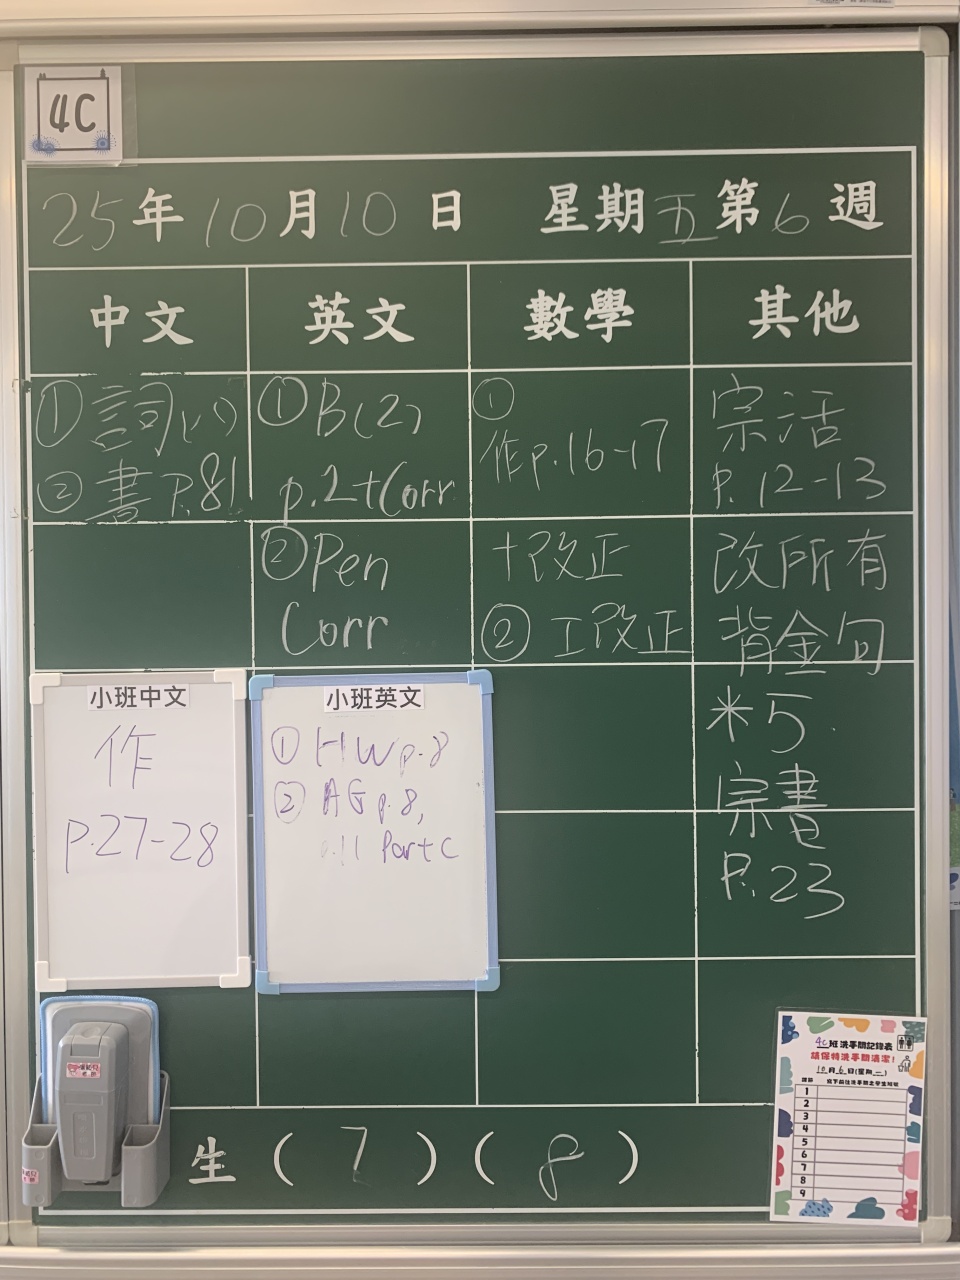 4C
25年10月10日 星期五第6週
中文 英文 數學 其他
①詞(八)
②書P.81
①B(2)
p.2+Corr
②Pen
Corr
①
作p.16-17
+改正
②工改正
宗活
P.12-13
改所有
背金句
*5
宗書
P.23
小班中文
作
p.27-28
小班英文
①HW p.8
②AG p.8,
p.11 Part C
生(7)(8)
4C班洗手間記錄表
請保持洗手間清潔!
10月6日(星期一)
1
2
3
4
5
6
7
8
9